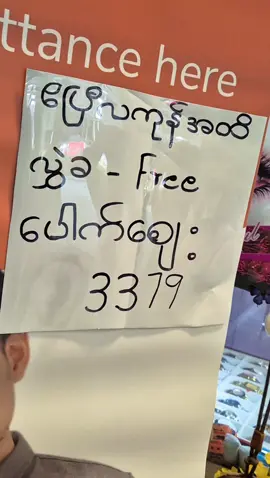 ttance here
ဧပြီလကုန်အထိ
လွှဲခ - Free
ပေါက်ဈေး
3379